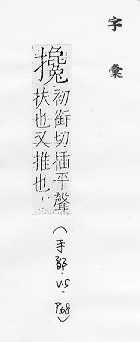 字彙
攙
初銜切插平聲
扶也又推也
(手部.V.5.